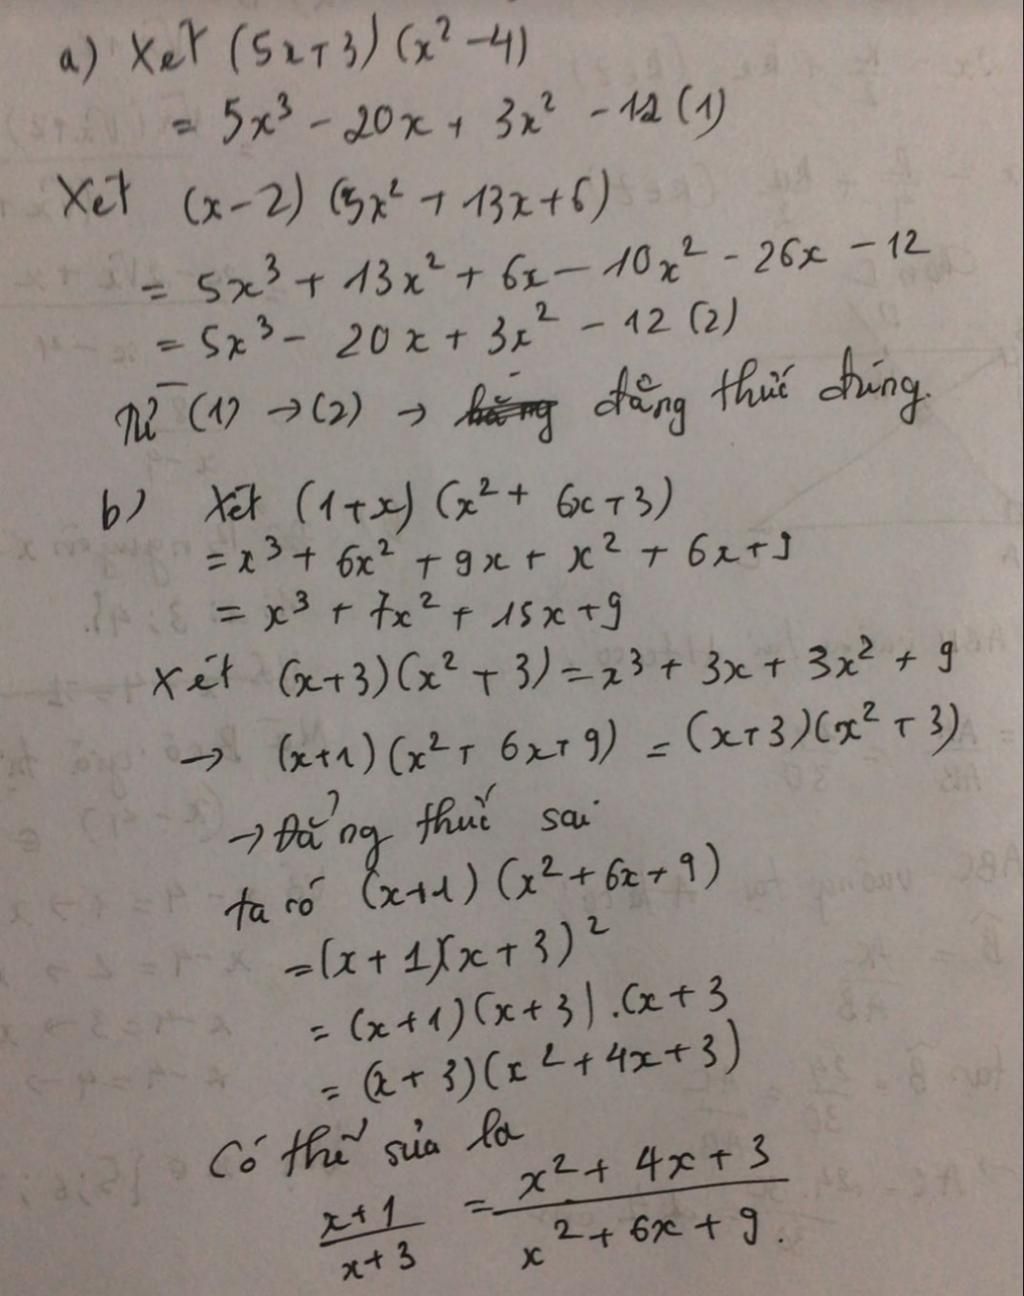 a) Xét (5x+3)(x² - 4)
= 5x³ - 20x + 3x² - 12 (1)
Xét (x-2) (5x² + 13x+6)
= 5x³ + 13x² + 6x - 10x² - 26x - 12
= 5x³ - 20x + 3x² - 12 (2)
Từ (1) → (2) → đẳng thức đúng.
b) Xét (1+x) (x² + 6x+3)
= x³ + 6x² + 9x + x² + 6x+9
= x³ + 7x² + 15x+9
Xét (x+3)(x² + 3) = x³ + 3x + 3x² + 9
→ (x+1)(x² + 6x+9) = (x+3)(x² + 3)
→ Đẳng thức sai
ta có (x+1) (x² + 6x+9)
= (x+1)(x+3)²
= (x+1)(x+3).(x+3
= (x+3)(x² + 4x+3)
Có thể sửa la
x+1 / x+3 = x² + 4x + 3 / x² + 6x + 9.